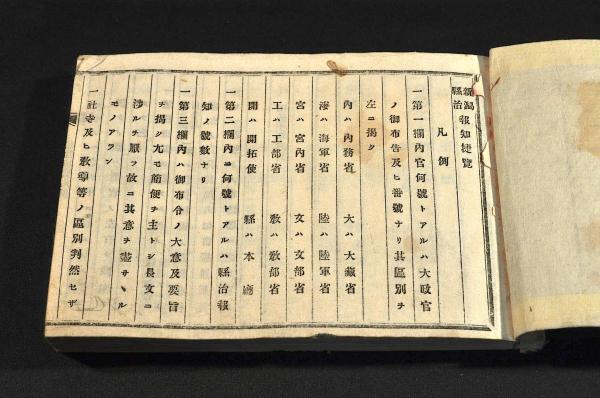 新潟縣治報知總覽
凡例
一第一欄內官何號トアルハ大政官
ノ御布告及ヒ番號ナリ其區別ヲ
左ニ揭ク
內ハ內務省 大ハ大藏省
海ハ海軍省 陸ハ陸軍省
宮ハ宮內省 文ハ文部省
工ハ工部省 敎ハ敎部省
開ハ開拓使 縣ハ本廳
一第二欄內ニ何號トアルハ縣治報
知ノ號數ナリ
一第三欄內ハ御布令ノ大意及要旨
ヲ揭ク尤モ簡便ヲ主トシ長文ニ
涉ルヲ厭フ故ニ其意ヲ盡サヽル
モノアラン
一社寺及ヒ敎導等ノ區別判然セザ